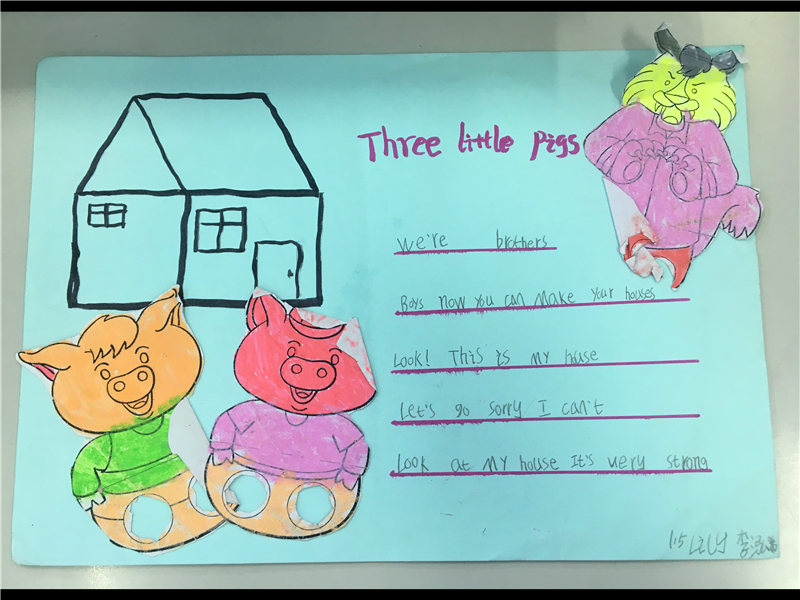 Three little pigs
We're brothers
Boys now you can make your houses
Look! This is my house
Let's go sorry I can't
Look at my house It's very strong
1.5 LiLy 李泓